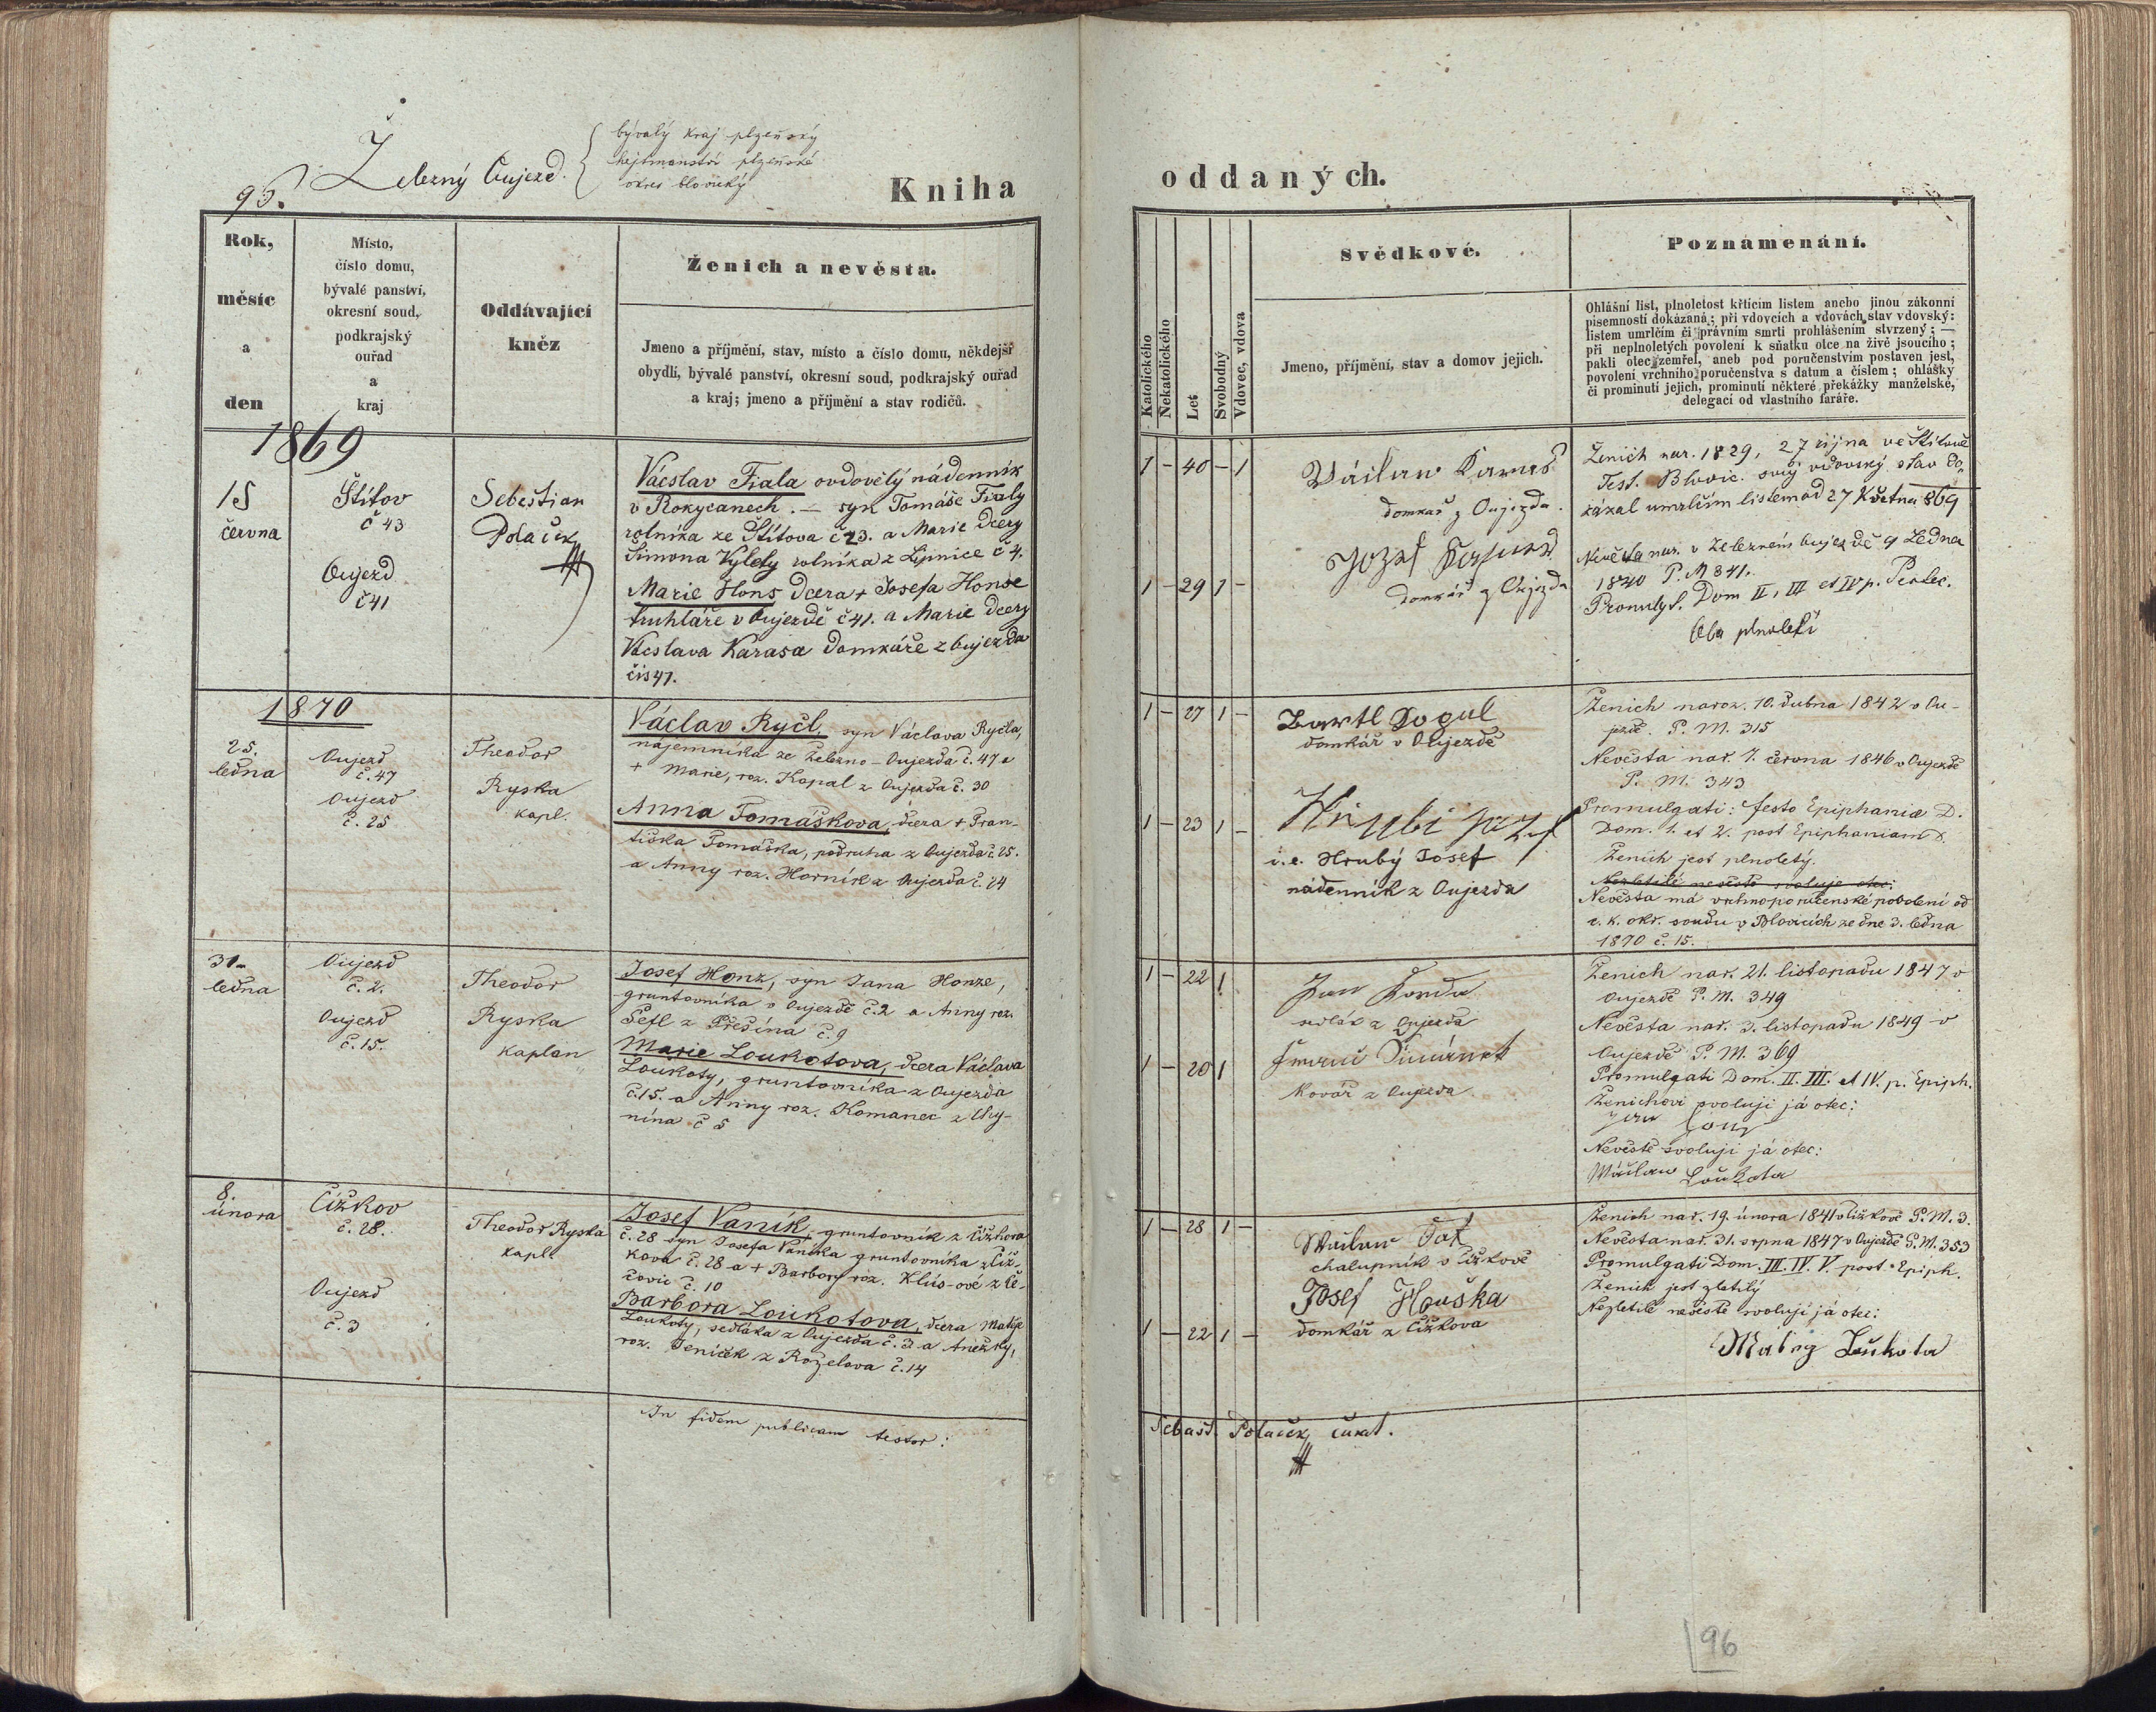 95.
Železný Oujezd.
bývalý kraj plzeňský
hejtmanství plzeňské
okres blovický
Kniha
oddaných.
Rok,
měsíc
a
den
Místo,
číslo domu,
bývalé panství,
okresní soud,
podkrajský
ouřad
a
kraj
Oddávající
kněz
Ženich a nevěsta.
Jmeno a příjmění, stav, místo a číslo domu, někdejší
obydlí, bývalé panství, okresní soud, podkrajský ouřad
a kraj; jmeno a příjmění a stav rodičů.
Katolického
Nekatolického
Let
Svobodný
Vdovec, vdova
Svědkové.
Jmeno, příjmění, stav a domov jejich.
Poznamenání.
Ohlášní list, plnoletost křticím listem anebo jinou zákonní
písemností dokázaná; při vdovcích a vdovách stav vdovský:
listem umrlčím či právním smrti prohlášením stvrzený; —
při neplnoletých povolení k sňatku otce na živě jsoucího;
pakli otec zemřel, aneb pod poručenstvím postaven jest,
povolení vrchního poručenstva s datum a číslem; ohlášky
či prominutí jejich, prominutí některé překážky manželské,
delegací od vlastního faráře.
1869
15
června
Štítov
č 43
Oujezd
č 41
Sebestian
Polaček
Vácslav Fiala ovdovělý nádenník
v Rokycanech. — syn Tomáše Fialy
rolníka ze Štítova č 23. a Marie dcery
Šimona Vylety rolníka z Lipnice č 4.
Marie Hons dcera + Josefa Honse
truhláře v Oujezdě č 41. a Marie dcery
Vácslava Karasa domkáře z Oujezda
čis 47.
1 - 40 - 1
1 - 29 1 -
Václaw Karas
domkař z Oujezda.
Jozef
domkář z Oujezda
Ženich nar. 1829, 27 října ve Štítově
Test. Blovic. svůj vdovský stav do-
kázal umrlčím listem od 27 Května 869
Nevěsta nar. v Železném Oujezdě 9 Ledna
1840 P. M 341.
Promulg. Dom II, III et IV p. Pentec.
Oba plnoletí
1870
25.
ledna
Oujezd
č. 47
Oujezd
č. 25
Theodor
Ryska
kapl.
Václav Ryčl, syn Václava Ryčla,
nájemníka ze Železno-Oujezda č. 47 a
+ Marie, roz. Kopal z Oujezda č. 30
Anna Tomáškova, dcera + Fran-
tiška Tomáška, podruha z Oujezda č. 25.
a Anny roz. Horník z Oujezda č. 24
1 - 27 1 -
1 - 23 1 -
Bartl Dogul
domkář v Oujezdě
Hrubi Jozef
i.e. Hrubý Josef
nádenník z Oujezda
Ženich naroz. 10. dubna 1842 v Ou-
jezdě. P. M. 315
Nevěsta nar. 7. června 1846 v Oujezdě
P. M. 343
Promulgati: festo Epiphaniæ D.
Dom. 1. et 2. post Epiphaniam D.
Ženich jest plnoletý.
Nezletilé nevěstě svoluje otec:
Nevěsta má vrchnoporučenské povolení od
c. k. okr. soudu v Blovicích ze dne 3. ledna
1870 č. 15.
31.
ledna
Oujezd
č. 2.
Oujezd
č. 15.
Theodor
Ryska
kaplan
Josef Honz, syn Jana Honze,
gruntovníka v Oujezdě č. 2 a Anny roz.
Šefl z Přešína č. 9
Marie Loukotova, dcera Václava
Loukoty, gruntovníka z Oujezda
č. 15. a Anny roz. Komanec z Chy-
nína č 5
1 - 22 1
1 - 20 1
Jan
sedlák z Oujezda
kovář z Oujezda
Ženich nar. 21. listopadu 1847 v
Oujezdě P. M. 349
Nevěsta nar. 3. listopadu 1849 v
Oujezdě P. M. 369
Promulgati Dom. II. III. et IV. p. Epiph.
Ženichovi svoluji já otec:
Jan Honz
Nevěstě svoluji já otec:
Wáclaw Loukota
8.
února
Čížkov
č. 28.
Oujezd
č. 3
Theodor Ryska
kapl.
Josef Vaník, gruntovník z Čížkova
č. 28 syn Josefa Vaníka gruntovníka z Číž-
kova č. 28 a + Barbory roz. Klús-ové z Če-
čovic č. 10
Barbora Loukotova, dcera Matěje
Loukoty, sedláka z Oujezda č. 3 a Anežky,
roz. Jeníček z Roželova č. 14
1 - 28 1 -
1 - 22 1 -
Waclaw
chalupník v Čížkově
Josef Houška
domkář z Čížkova
Ženich nar. 19. února 1841 v Čížkově P. M. 3.
Nevěsta nar. 31. srpna 1847 v Oujezdě P. M. 353
Promulgati Dom. III. IV. V. post Epiph.
Ženich jest zletilý
Nezletilé nevěstě svoluji já otec:
Matěg Loukota
In fidem publicam testor:
Sebast. Polaček, curat.
96